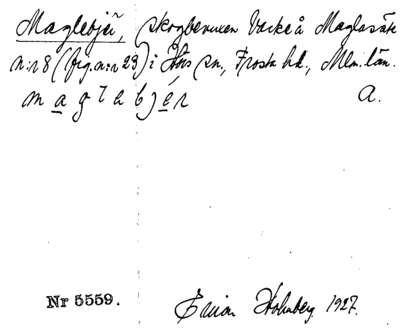 Maglebjär, skogbevuxen backe å Maglasäte
n:r 8 (fig. n:r 23) i Höörs sn., Frosta hd., Mlm. län.
m a g l a b j é r A.
Nr 5559. Ewan Holmberg 1927.